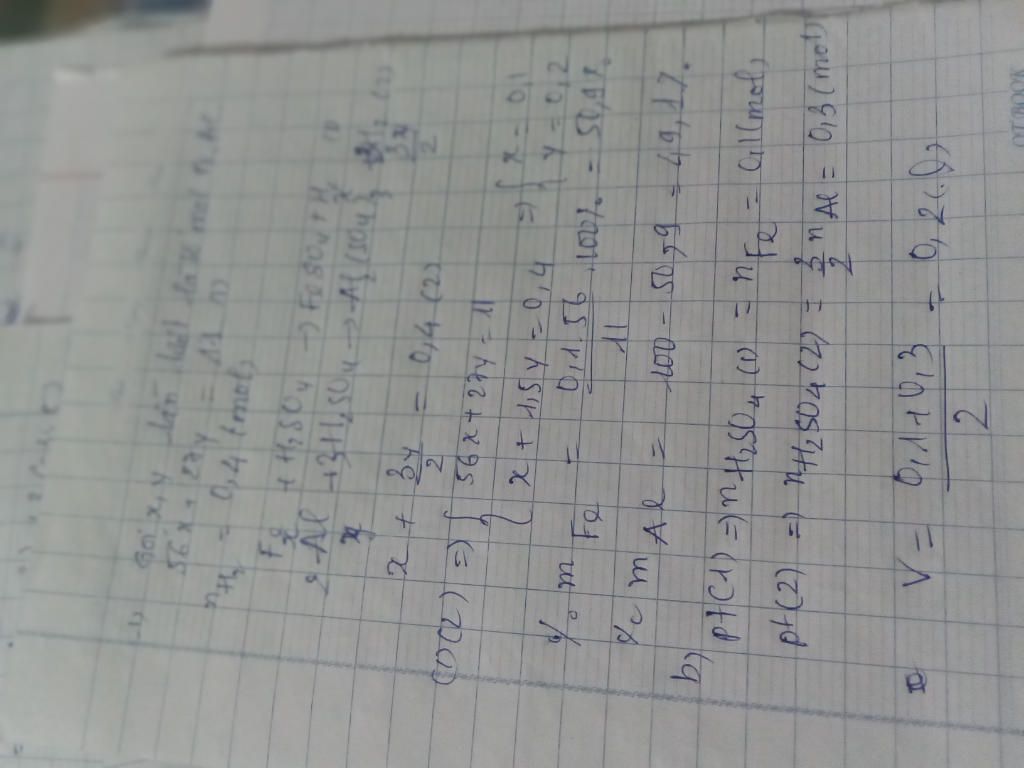 Gọi x, y lần lượt là số mol Fe, Al
56x + 27y = 11 (1)
nH₂ = 0,4 (mol)
Fe + H₂SO₄ → FeSO₄ + H₂ (1)
x x
2Al + 3H₂SO₄ → Al₂(SO₄)₃ + 3H₂ (2)
y 3y/2
x + 3y/2 = 0,4 (2)
(1)(2) => { 56x + 27y = 11
{ x + 1,5y = 0,4 => { x = 0,1
{ y = 0,2
% m Fe = 0,1.56/11 .100% = 50,9%
% m Al = 100 - 50,9 = 49,1%
b)
pt(1) => nH₂SO₄(1) = nFe = 0,1(mol)
pt(2) => nH₂SO₄(2) = 3/2 nAl = 0,3(mol)
V = 0,1+0,3/2 = 0,2(l)